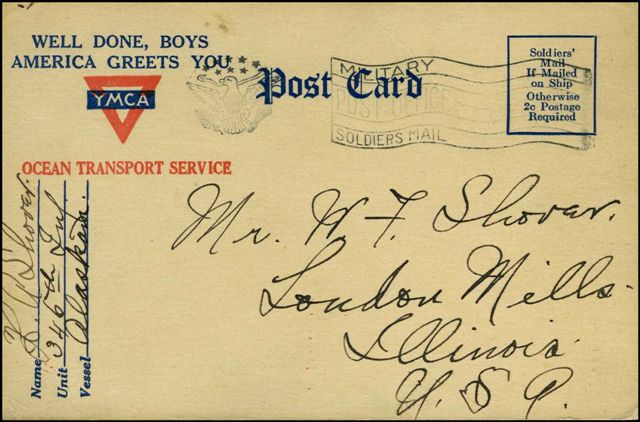 WELL DONE, BOYS
AMERICA GREETS YOU
YMCA
OCEAN TRANSPORT SERVICE
Post Card
MILITARY
POST OFFICE
SOLDIERS MAIL
Soldiers'
Mail
If Mailed
on Ship
Otherwise
2c Postage
Required
Mr. W. F. Shover.
London Mills.
Illinois.
U. S. A.
Name Shover.
Unit 346th Inf
Vessel Alaskan.